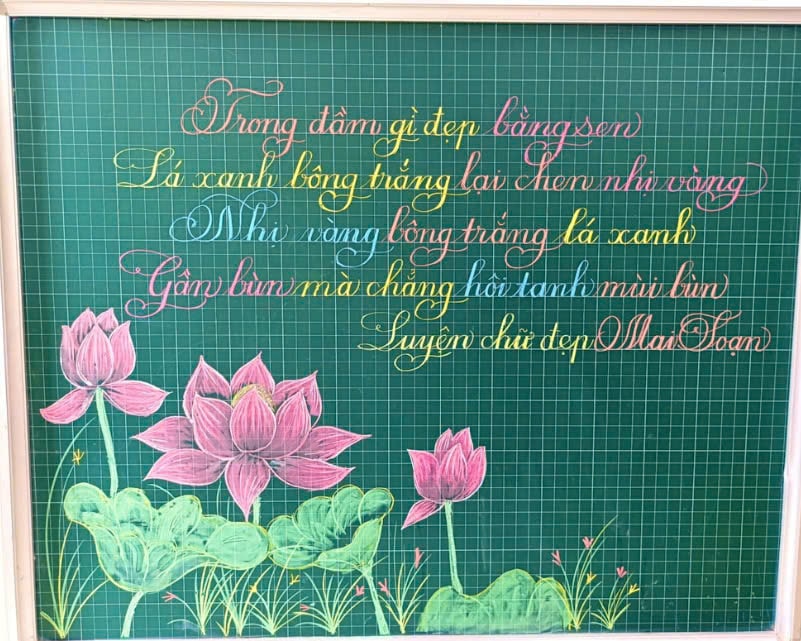 Trong đầm gì đẹp bằng sen
Lá xanh bông trắng lại chen nhị vàng
Nhị vàng bông trắng lá xanh
Gần bùn mà chẳng hôi tanh mùi bùn
Luyện chữ đẹp Mai Soạn